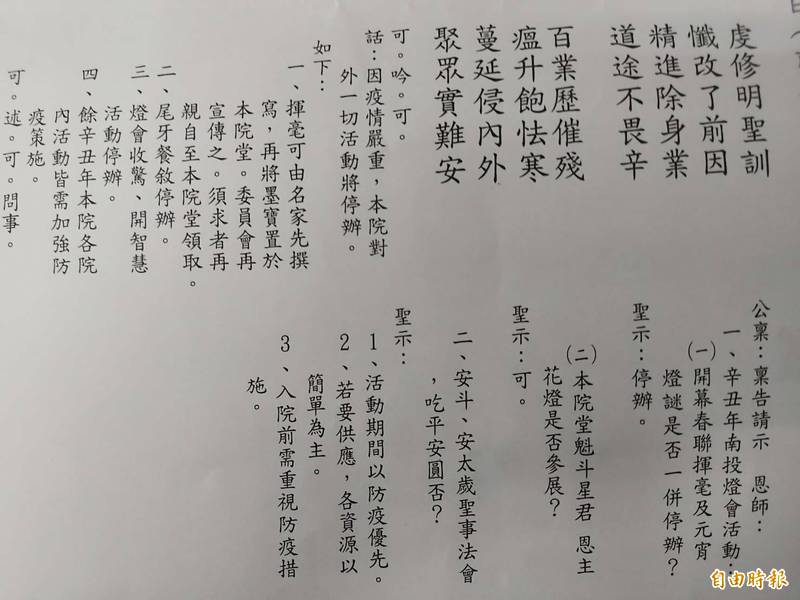 虔修明聖訓
懺改了前因
精進除身業
道途不畏辛
百業歷催殘
瘟升飽怯寒
蔓延侵內外
聚眾實難安
可。吟。可。
話：因疫情嚴重，本院對
外一切活動將停辦。
如下：
一、揮毫可由名家先撰
寫，再將墨寶置於
本院堂。委員會再
宣傳之。須求者再
親自至本院堂領取。
二、尾牙餐敘停辦。
三、燈會收驚、開智慧
活動停辦。
四、餘辛丑年本院各院
內活動皆需加強防
疫策施。
可。述。可。問事。
公稟：稟告請示 恩師：
一、辛丑年南投燈會活動：
㈠開幕春聯揮毫及元宵
燈謎是否一併停辦？
聖示：停辦。
㈡本院堂魁斗星君 恩主
花燈是否參展？
聖示：可。
二、安斗、安太歲聖事法會
，吃平安圓否？
聖示：
1、活動期間以防疫優先。
2、若要供應，各資源以
簡單為主。
3、入院前需重視防疫措
施。
自由時報